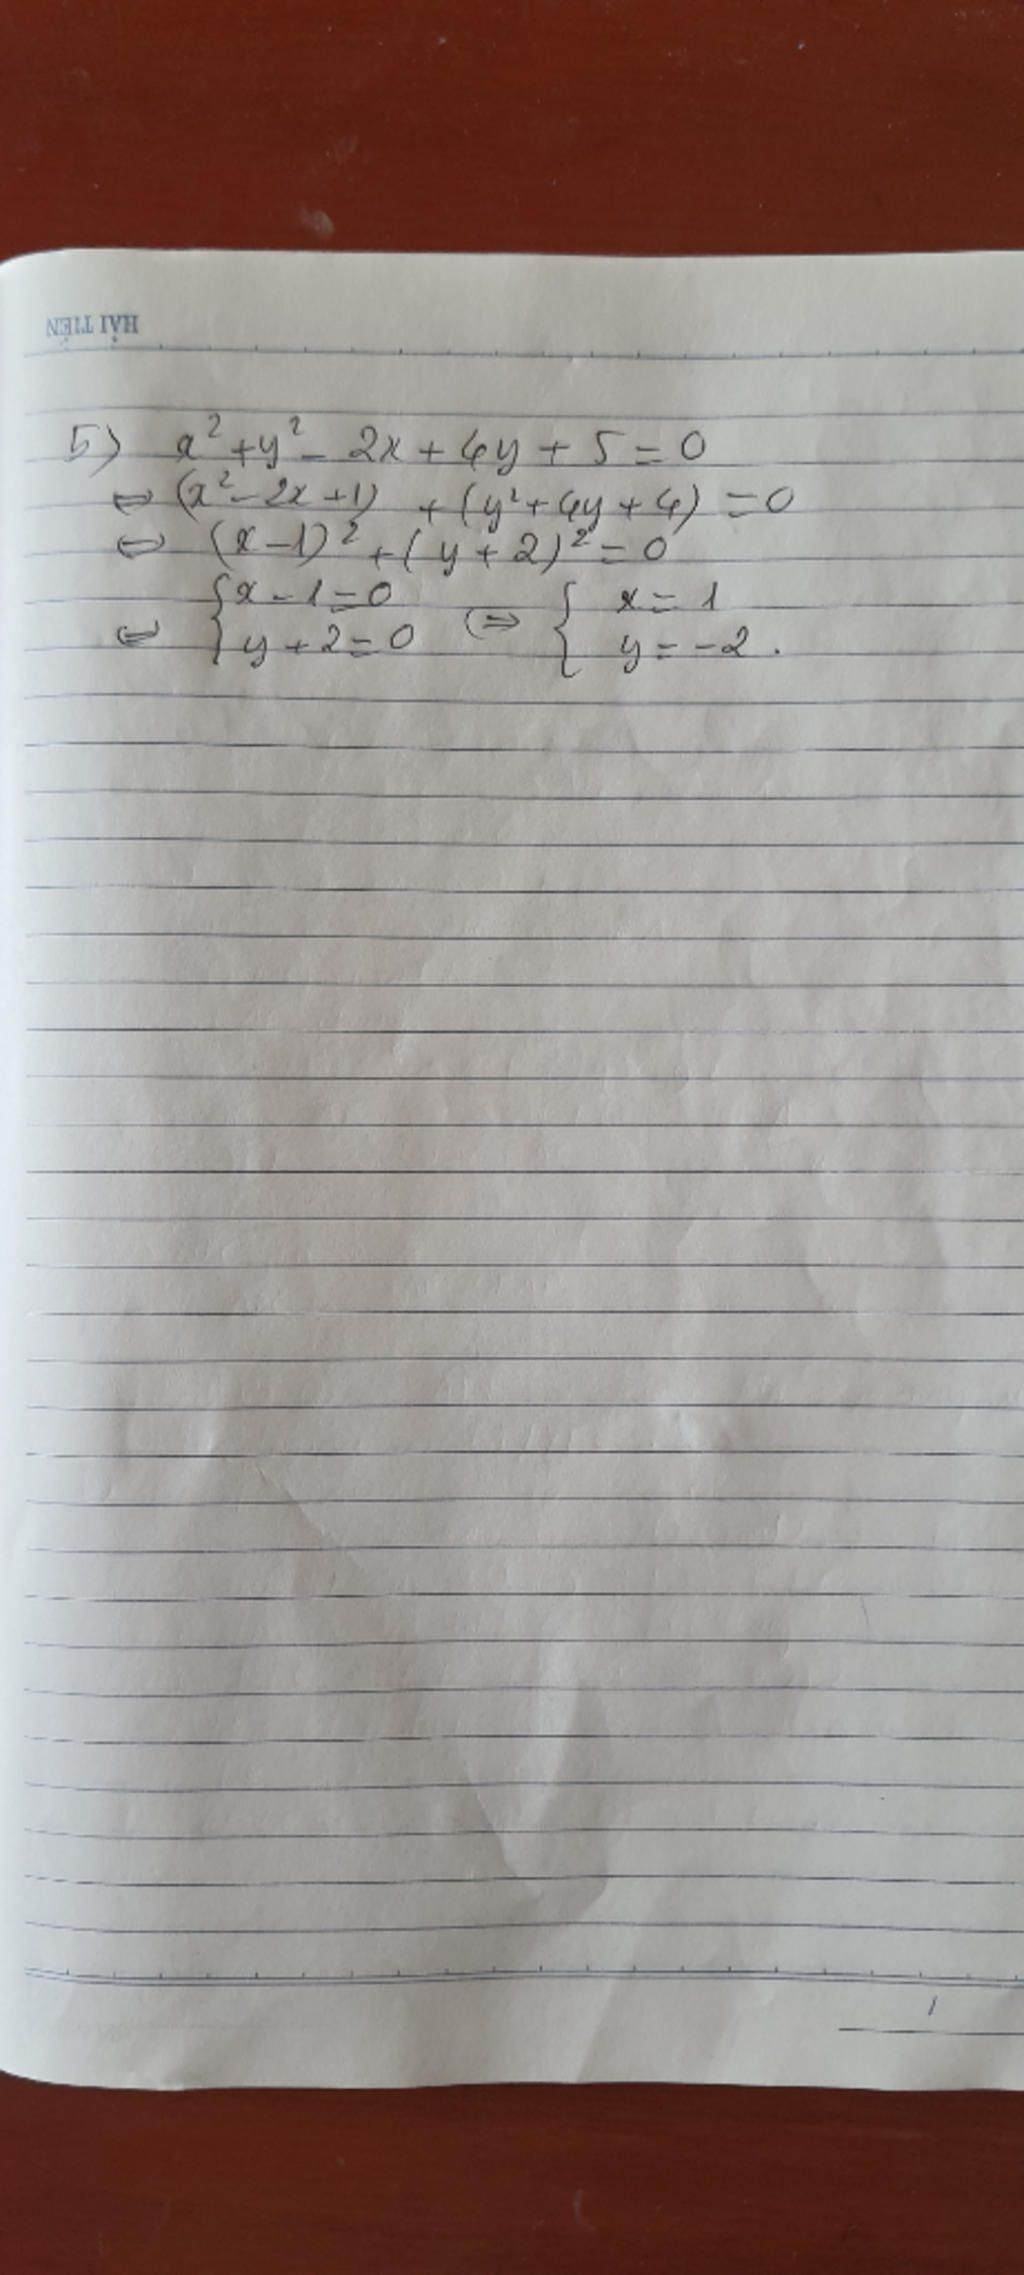 HẢI TIẾN
5) x² + y² - 2x + 4y + 5 = 0
⇔ (x² - 2x + 1) + (y² + 4y + 4) = 0
⇔ (x - 1)² + (y + 2)² = 0
⇔ { x - 1 = 0 ⇔ { x = 1
y + 2 = 0 y = -2.